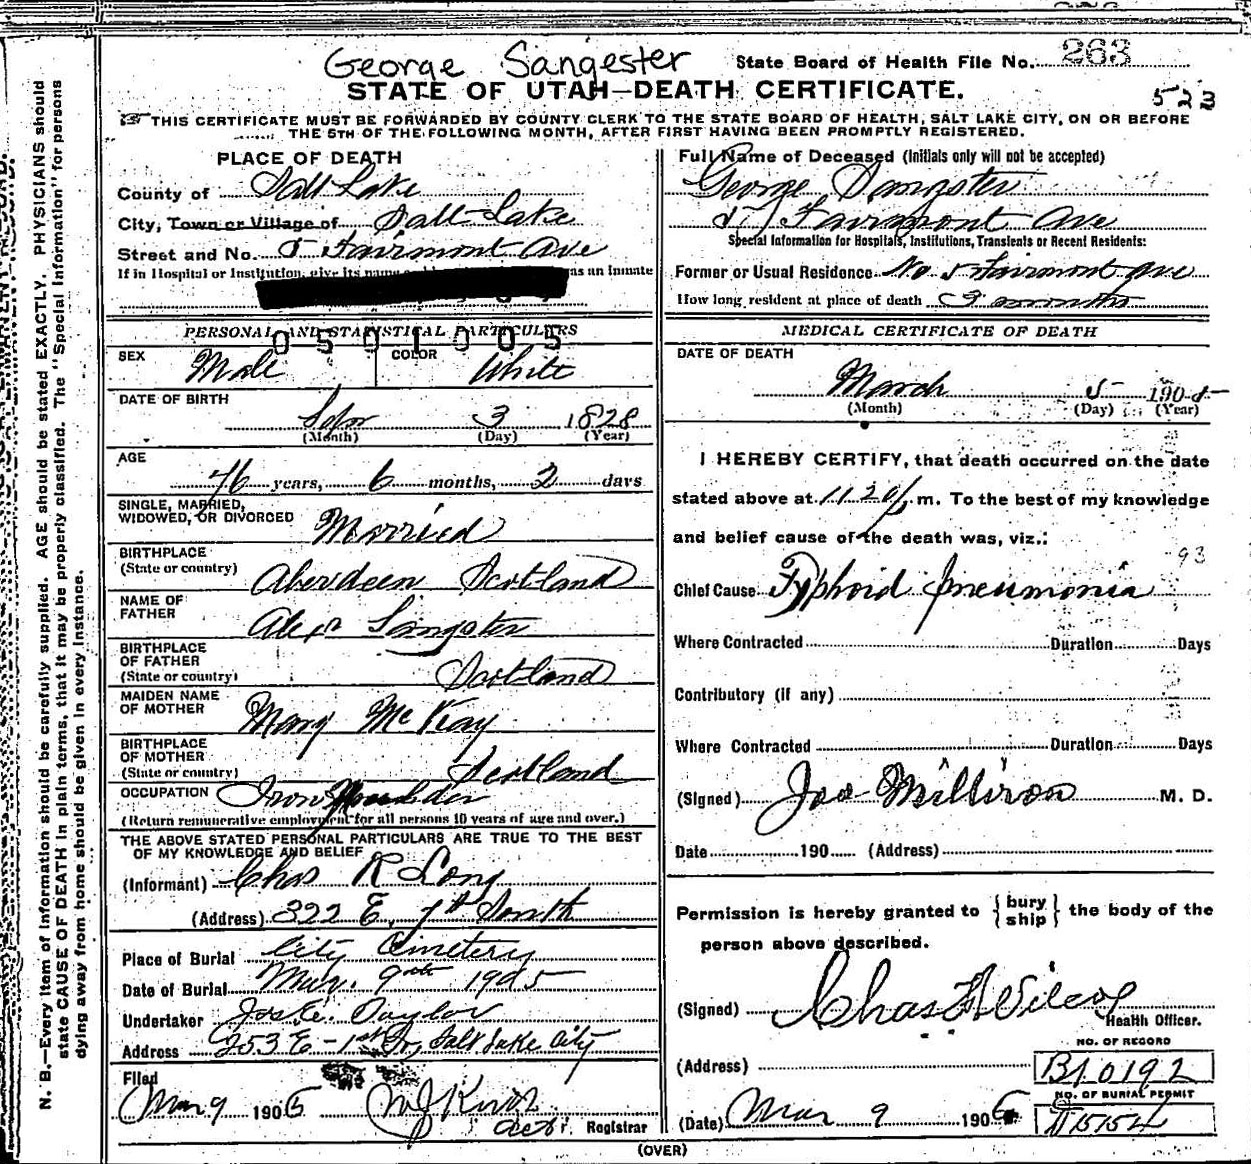 George Sangester
State Board of Health File No. 263
STATE OF UTAH—DEATH CERTIFICATE.
523
THIS CERTIFICATE MUST BE FORWARDED BY COUNTY CLERK TO THE STATE BOARD OF HEALTH, SALT LAKE CITY, ON OR BEFORE
THE 5TH OF THE FOLLOWING MONTH, AFTER FIRST HAVING BEEN PROMPTLY REGISTERED.
N. B.—Every item of information should be carefully supplied. AGE should be stated EXACTLY. PHYSICIANS should
state CAUSE OF DEATH in plain terms, that it may be properly classified. The "Special Information" for persons
dying away from home should be given in every instance.
PLACE OF DEATH
County of Salt Lake
City, Town or Village of Salt Lake
Street and No. 5 Fairmont Ave
If in Hospital or Institution, give its name as an Inmate
PERSONAL AND STATISTICAL PARTICULERS
0501005
SEX Male
COLOR White
DATE OF BIRTH
Sep 3 1828
(Month) (Day) (Year)
AGE
76 years, 6 months, 2 days
SINGLE, MARRIED,
WIDOWED, OR DIVORCED Married
BIRTHPLACE
(State or country) Aberdeen Scotland
NAME OF
FATHER Alexr Sangster
BIRTHPLACE
OF FATHER
(State or country) Scotland
MAIDEN NAME
OF MOTHER Mary McKay
BIRTHPLACE
OF MOTHER
(State or country) Scotland
OCCUPATION Iron Moulder
(Return remunerative employment for all persons 10 years of age and over.)
THE ABOVE STATED PERSONAL PARTICULARS ARE TRUE TO THE BEST
OF MY KNOWLEDGE AND BELIEF
(Informant) Chas R Long
(Address) 322 E. 7th South
Place of Burial City Cemetery
Date of Burial Mar. 9th 1905
Undertaker Jos. E. Taylor
Address 253 E - 1st So, Salt Lake City
Filed
Mar 9 1905
Registrar
Full Name of Deceased (Initials only will not be accepted)
George Sangster
5 Fairmont Ave
Special Information for Hospitals, Institutions, Transients or Recent Residents:
Former or Usual Residence No 5 Fairmont Ave
How long resident at place of death 9 months
MEDICAL CERTIFICATE OF DEATH
DATE OF DEATH
March 5 1905
(Month) (Day) (Year)
I HEREBY CERTIFY, that death occurred on the date
stated above at 11 20 p. m. To the best of my knowledge
and belief cause of the death was, viz.:
93
Chief Cause Typhoid Pneumonia
Where Contracted Duration Days
Contributory (if any)
Where Contracted Duration Days
(Signed) Jos Milliron M. D.
Date 190 (Address)
Permission is hereby granted to {bury ship} the body of the
person above described.
(Signed) Chas F Wilcox
Health Officer.
NO. OF RECORD
(Address) B10192
NO. OF BURIAL PERMIT
(Date) Mar 9 1905